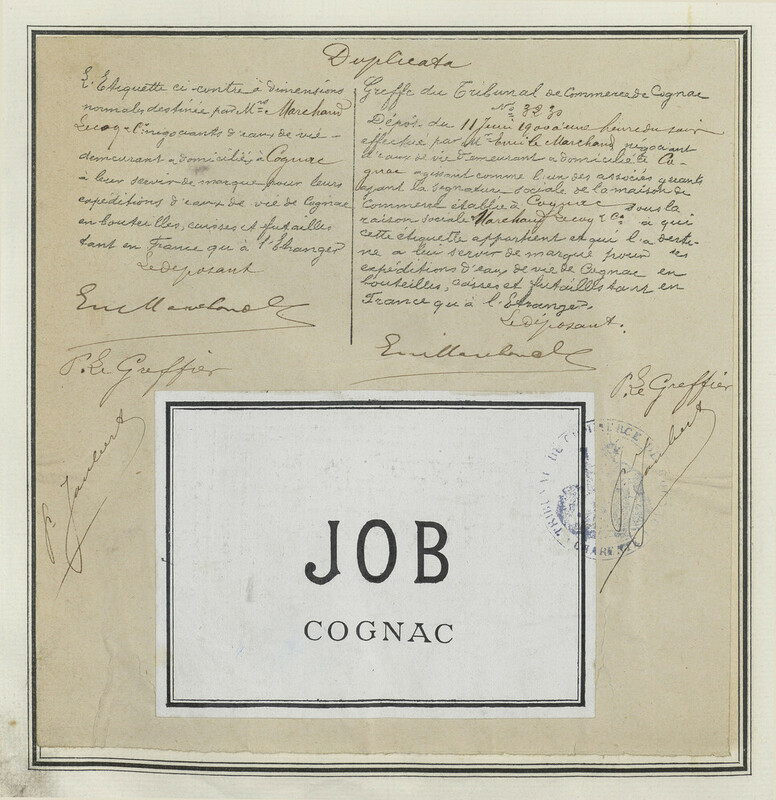 Duplicata
L'Etiquette ci contre à dimensions
normales destinée par Mrs Marchaud
Lecoq & Ce negociants d'eaux de vie
demeurant & domiciliés à Cognac
à leur servir de marque pour leurs
expéditions d'eaux de vie de Cognac
en bouteilles, caisses et futailles
tant en France qu'à l'Etranger
Le déposant
Em Marchaud
P. Le Greffier
P. Jaubert
Greffe du Tribunal de Commerce de Cognac
No 3230
Dépôt du 11 Juin 1900 à une heure du soir
effectué par Mr Emile Marchaud négociant
d'eaux de vie demeurant & domicilié à Co-
gnac agissant comme l'un des associés gérants
ayant la signature sociale de la maison de
Commerce établie à Cognac sous la
raison sociale Marchaud Lecoq & Ce à qui
cette étiquette appartient et qui l'a desti-
né à leur servir de marque pour ses
expéditions d'eaux de vie de Cognac en
bouteilles, caisses et futailles tant en
France qu'à l'Etranger
Le déposant.
Em Marchaud
P. Le Greffier
Jaubert
TRIBUNAL DE COMMERCE DE
CHARENTE
JOB
COGNAC